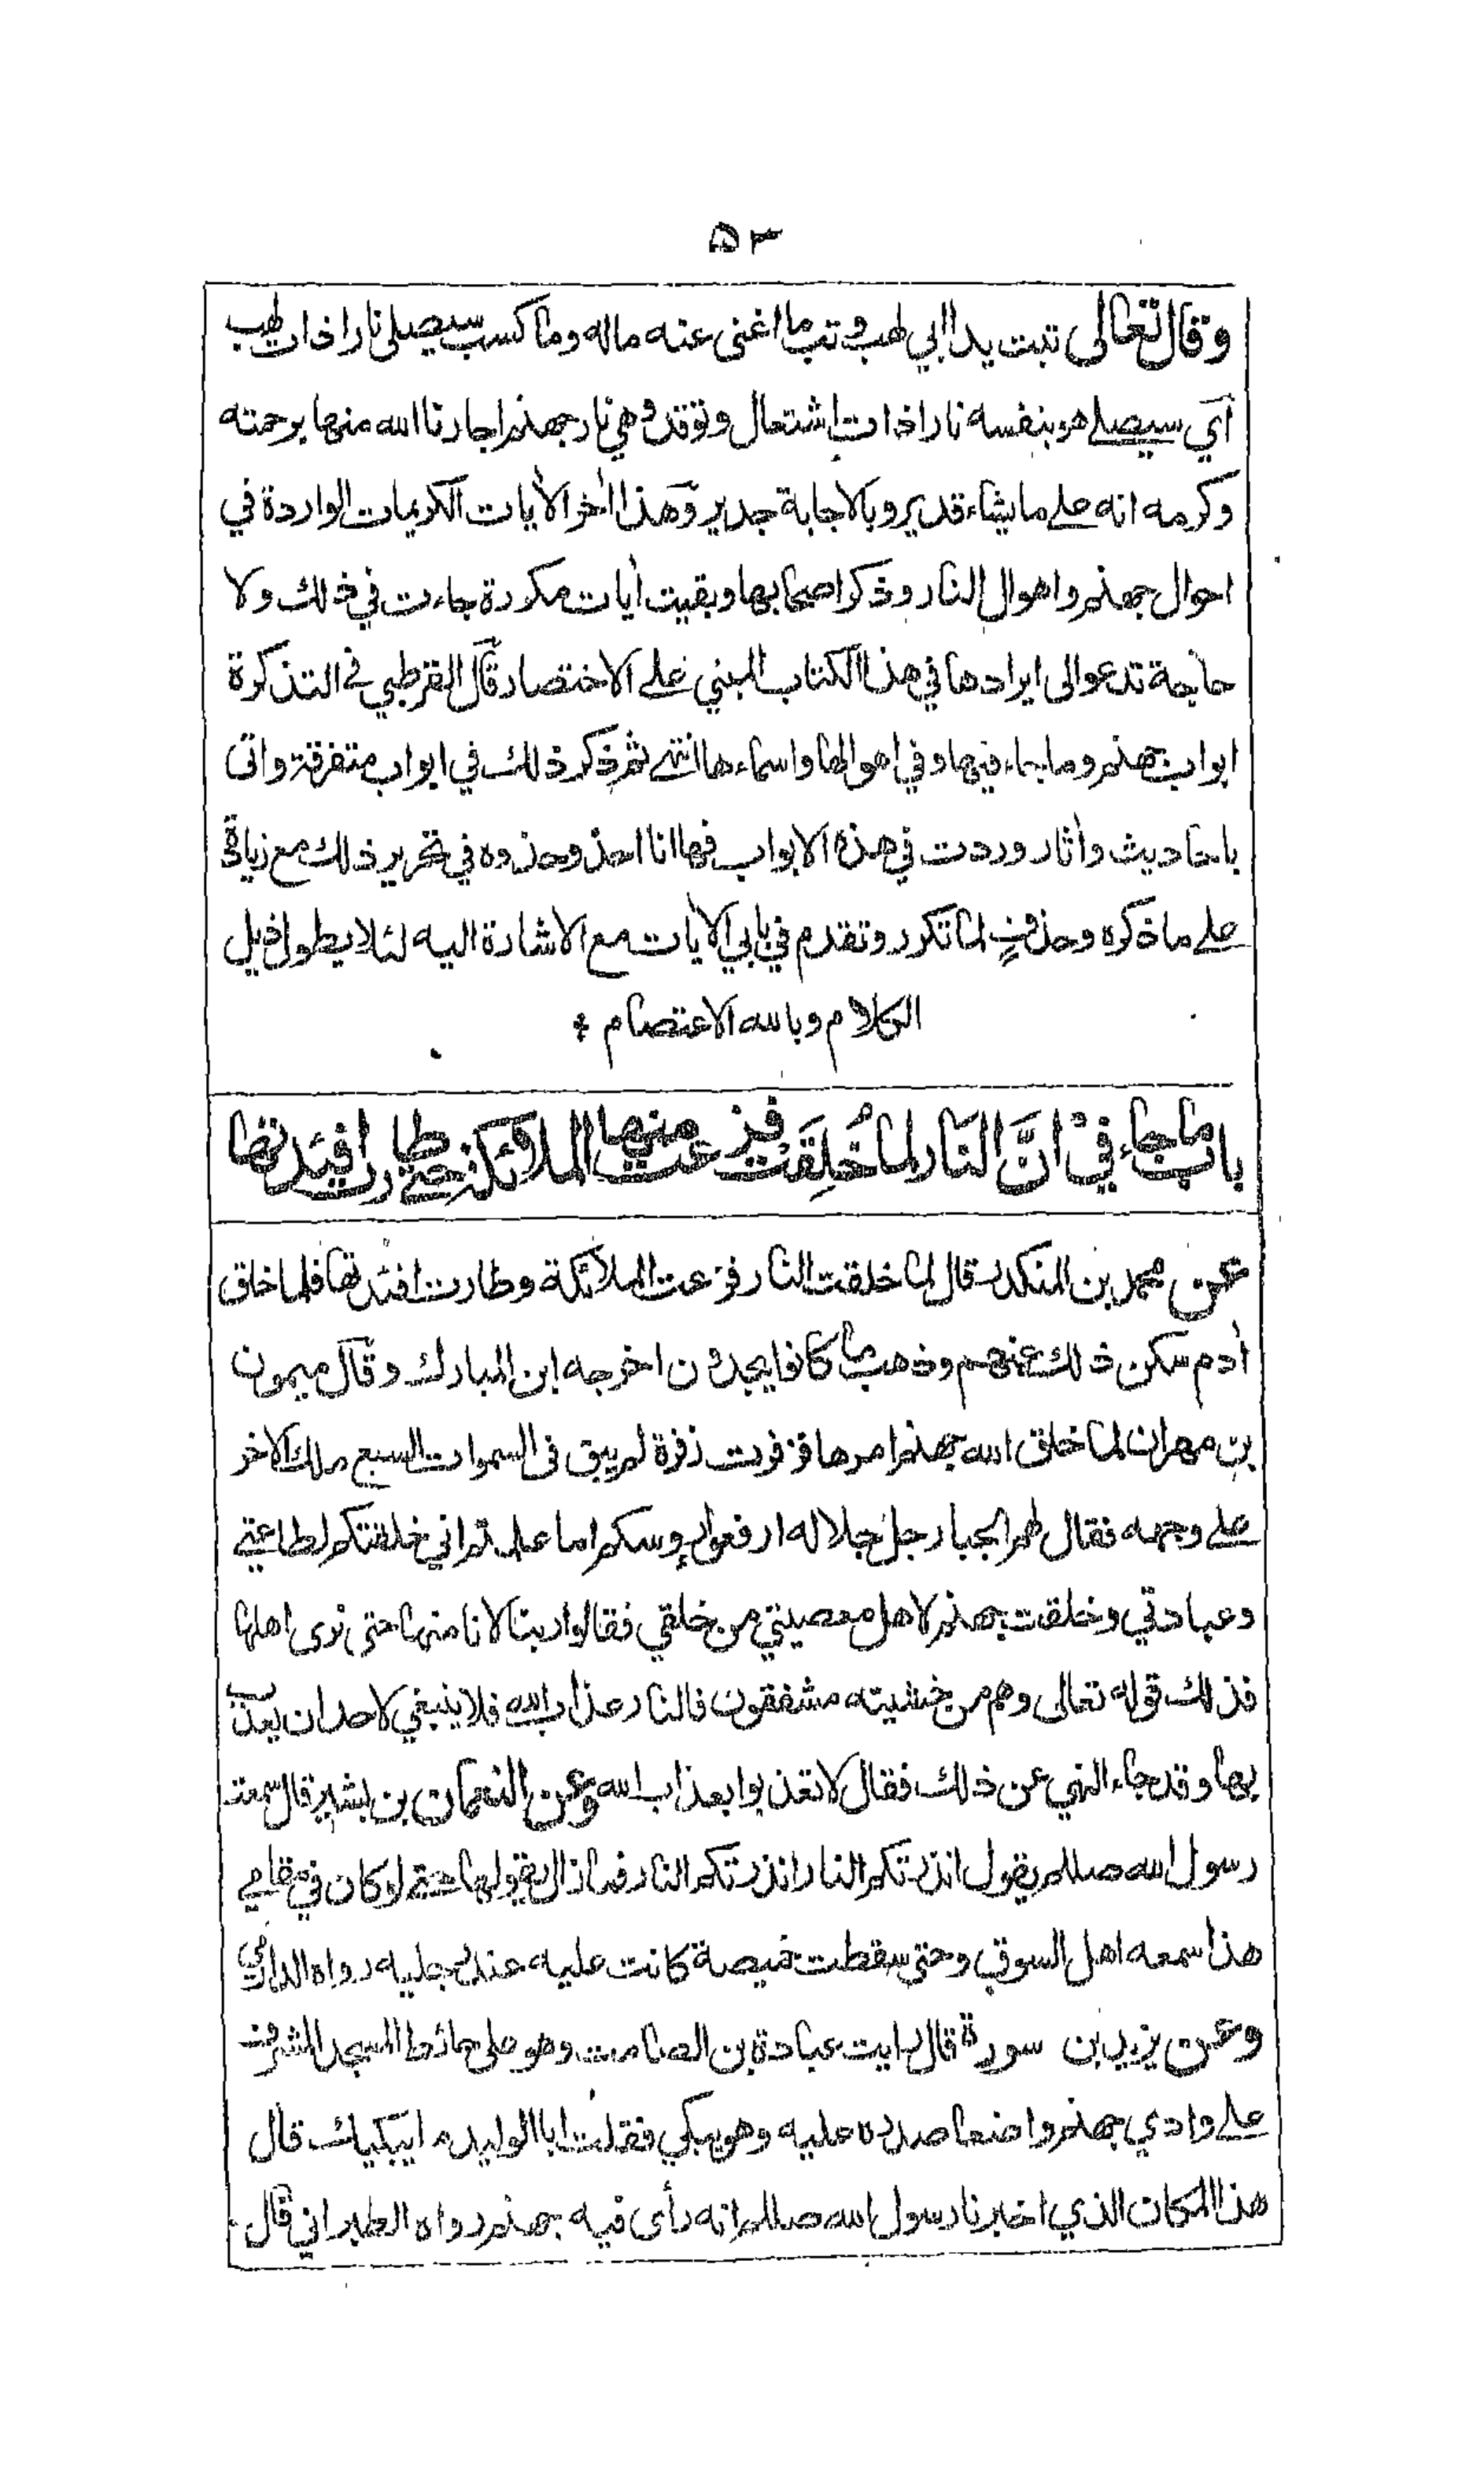 ۵۳
وقال تعالى تبت يدا ابي لهب وتب ما اغنى عنه ماله وما كسب سيصلى نارا ذات لهب
آي سيصلے هو بنفسه نارا ذات اشتعال وتوقد وهي نار جهنم اجارنا الله منها برحمته
وكرمه انه علے ما يشاء قدير وبالاجابة جدير وهذا اٰخر الاٰيات الكريمات الواردة في
احوال جهنم واهوال النار وذكر اصحابها وبقيت اٰيات مكررة جاءت في ذلك ولا
حاجة تدعو الى ايرادها في هذا الكتاب المبني علے الاختصار قال القرطبي في التذكرة
ابواب جهنم وما جاء فيها وفي اهوالها واسماءها انتهے ثم ذكر ذلك في ابواب متفرقة واتى
باحاديث واٰثار وردت في هذه الابواب فها انا احذو حذوه في تحرير ذلك مع زيادة
علے ما ذكره وحذفٍ لما تكرر وتقدم في بابي الاٰيات مع الاشارة اليه لئلا يطول ذيل
الكلام وبالله الاعتصام *
باب ما جاء في انَّ النَّار لما خُلِقَت فزعت منها الملائكة حتے طارت افئدتها
عن محمد بن المنكدر قال لما خلقت النار فزعت الملائكة وطارت افئدتها فلما خلق
اٰدم سكن ذلك عنهم وذهب ما كانوا يجدون اخرجه ابن المبارك وقال ميمون
بن مهران لما خلق الله جهنم امرها فزفرت زفرة لم يبق في السموات السبع ملك الا خر
علے وجهه فقال لهم الجبار جل جلاله ارفعوا رءوسكم اما علمتم اني خلقتكم لطاعتي
وعبادتي وخلقت جهنم لاهل معصيتي من خلقي فقالوا ربنا لا نامنها حتى نرى اهلها
فذلك قوله تعالى وهم من خشيته مشفقون فالنار عذاب الله فلا ينبغي لاحد ان يعذب
بها وقد جاء النهي عن ذلك فقال لا تعذبوا بعذاب الله وعن النعمان بن بشير قال سمعت
رسول الله صللم يقول انذرتكم النار انذرتكم النار فما زال يقولها حتے لو كان في مقامي
هذا سمعه اهل السوق وحتى سقطت خميصة كانت عليه عند رجليه رواه الدارمي
وعن يزيد بن سورة قال رايت عبادة بن الصامت وهو على حائط المسجد المشرف
علے وادي جهنم واضعا صدره عليه وهو يبكي فقلت ابا الوليد ما يبكيك قال
هذا المكان الذي اخبرنا رسول الله صللم انه رأى فيه جهنم رواه الطبراني قال